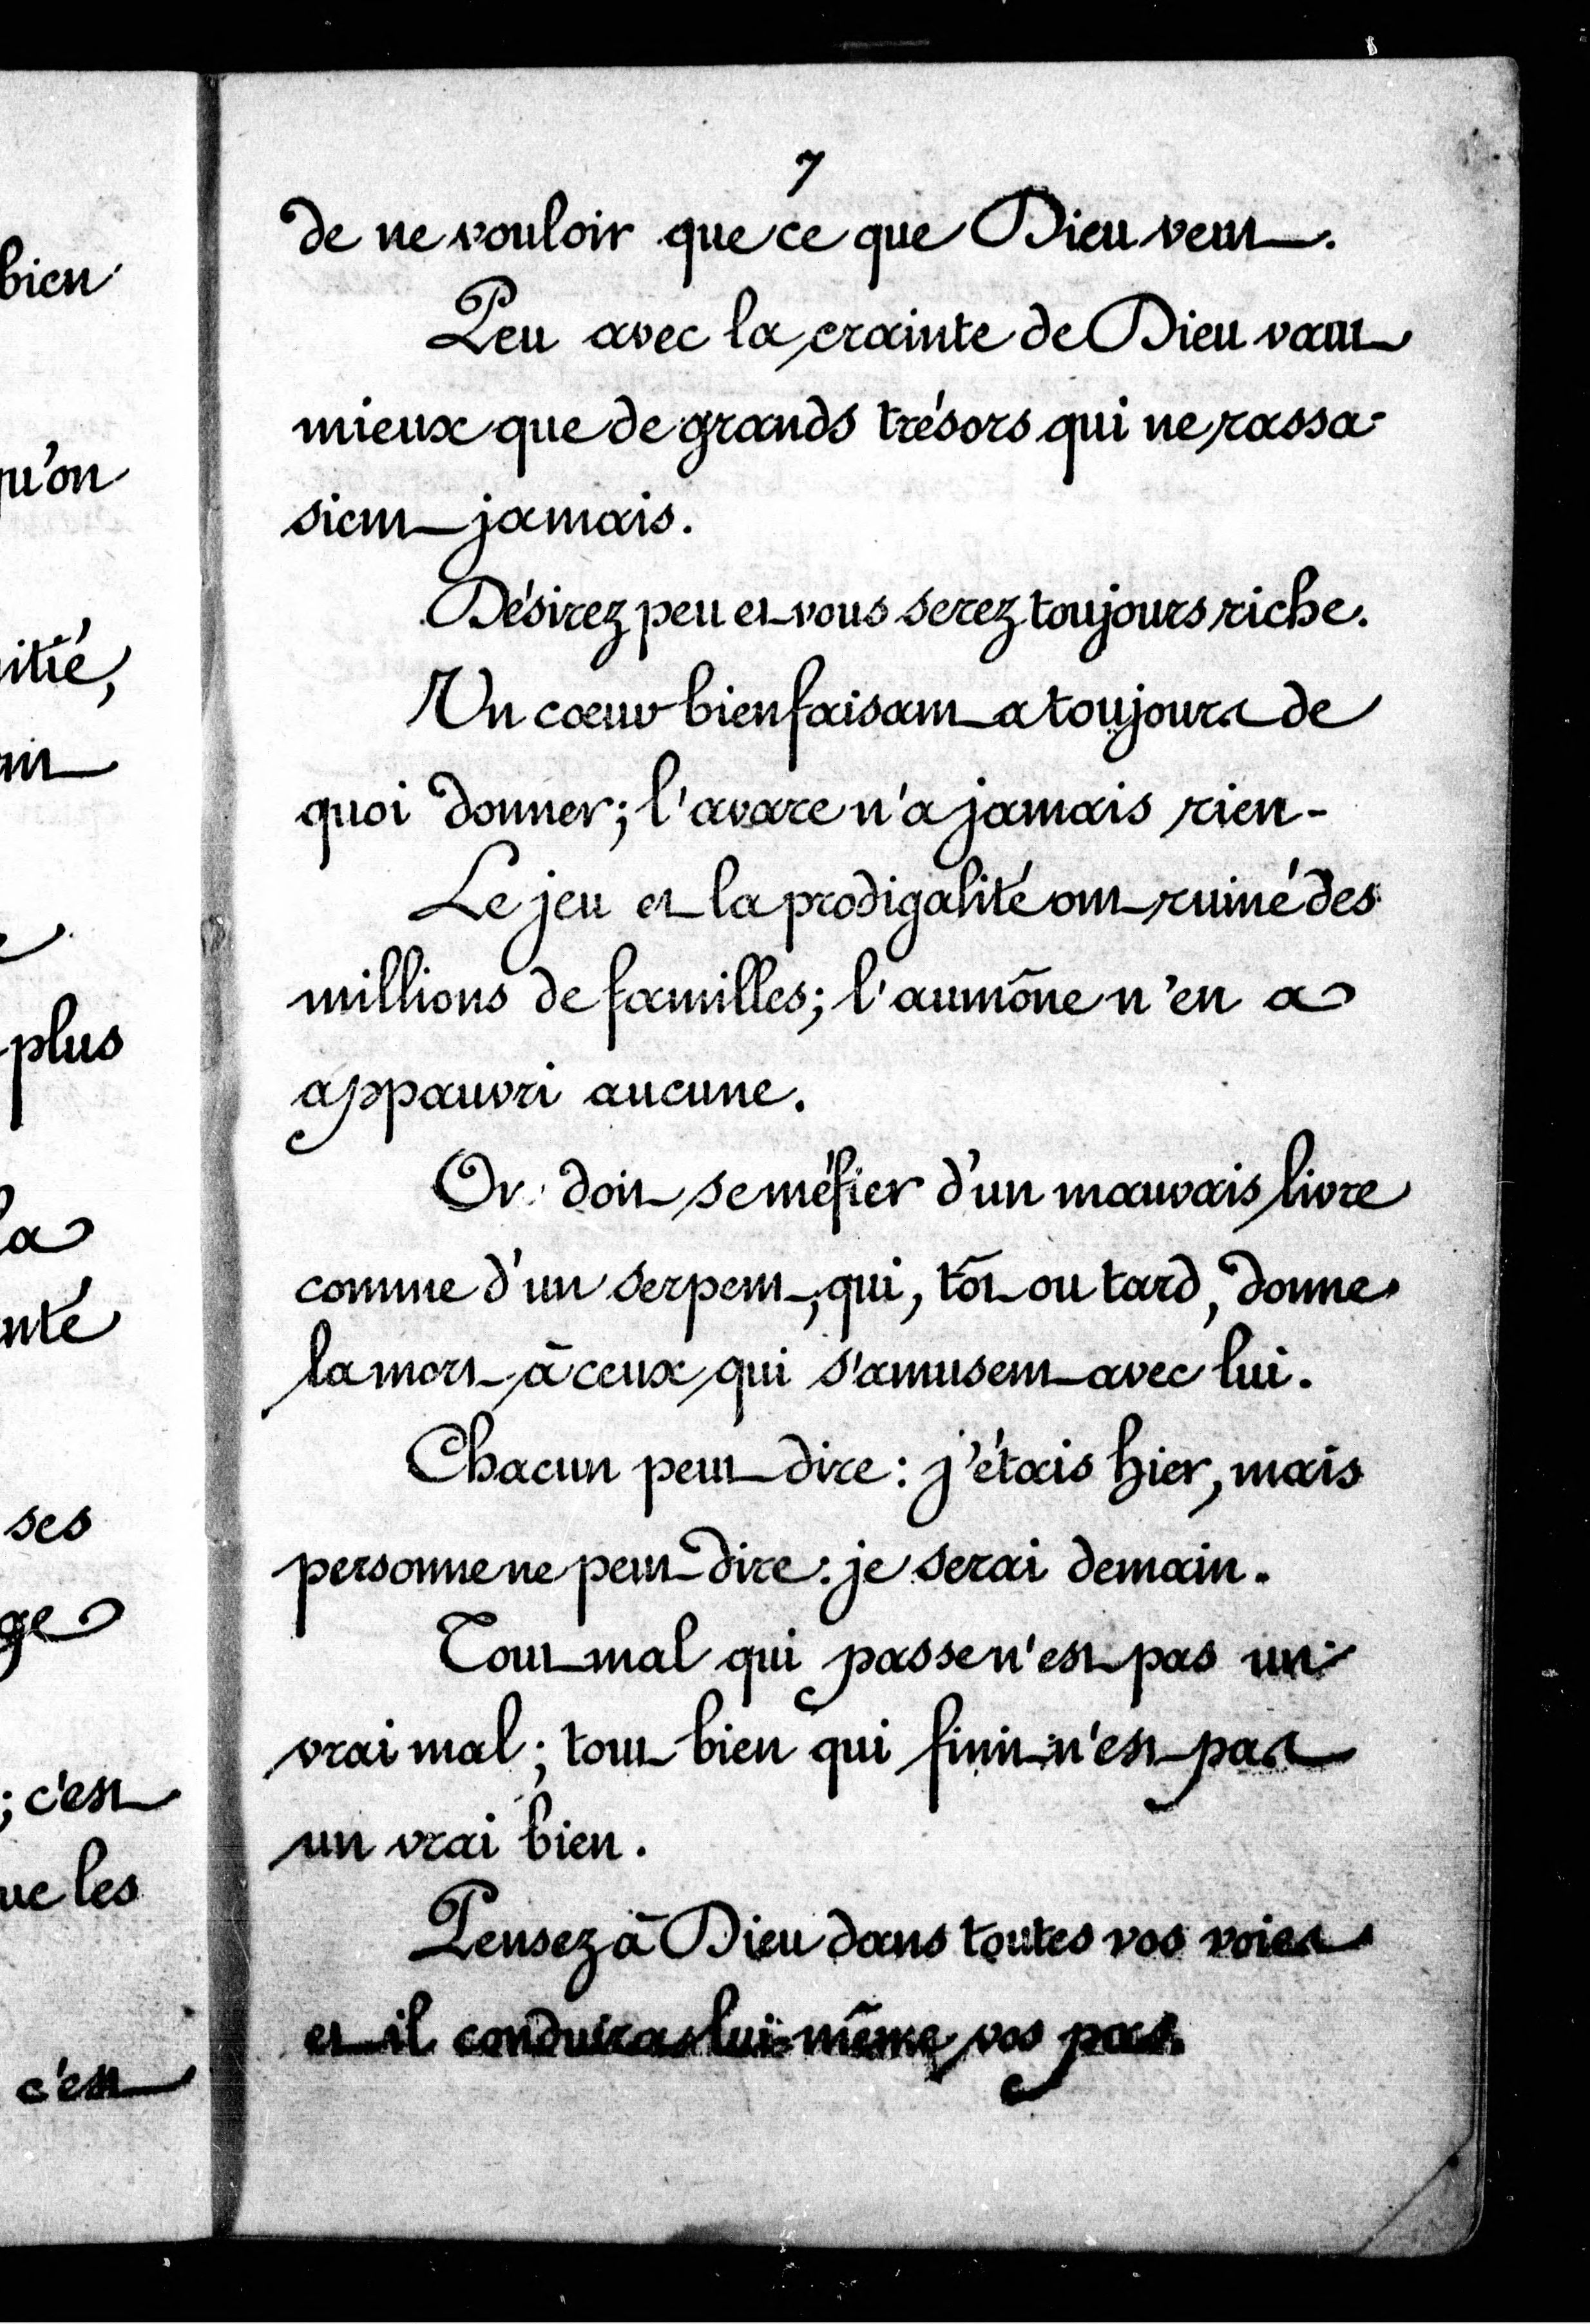 bien
qu'on
itié,
plus
la
nté
ses
ge
; c'est
ue les
c'est
7
de ne vouloir que ce que Dieu veut.
Peu avec la crainte de Dieu vaut
mieux que de grands trésors qui ne rassa-
sient jamais.
Désirez peu et vous serez toujours riche.
Un cœur bienfaisant a toujours de
quoi donner; l'avare n'a jamais rien.
Le jeu et la prodigalité ont ruiné des
millions de familles; l'aumône n'en a
appauvri aucune.
On doit se méfier d'un mauvais livre
comme d'un serpent, qui, tôt ou tard, donne
la mort à ceux qui s'amusent avec lui.
Chacun peut dire: j'étais hier, mais
personne ne peut dire: je serai demain.
Tout mal qui passe n'est pas un
vrai mal; tout bien qui finit n'est pas
un vrai bien.
Pensez à Dieu dans toutes vos voies
et il conduira lui-même vos pas.